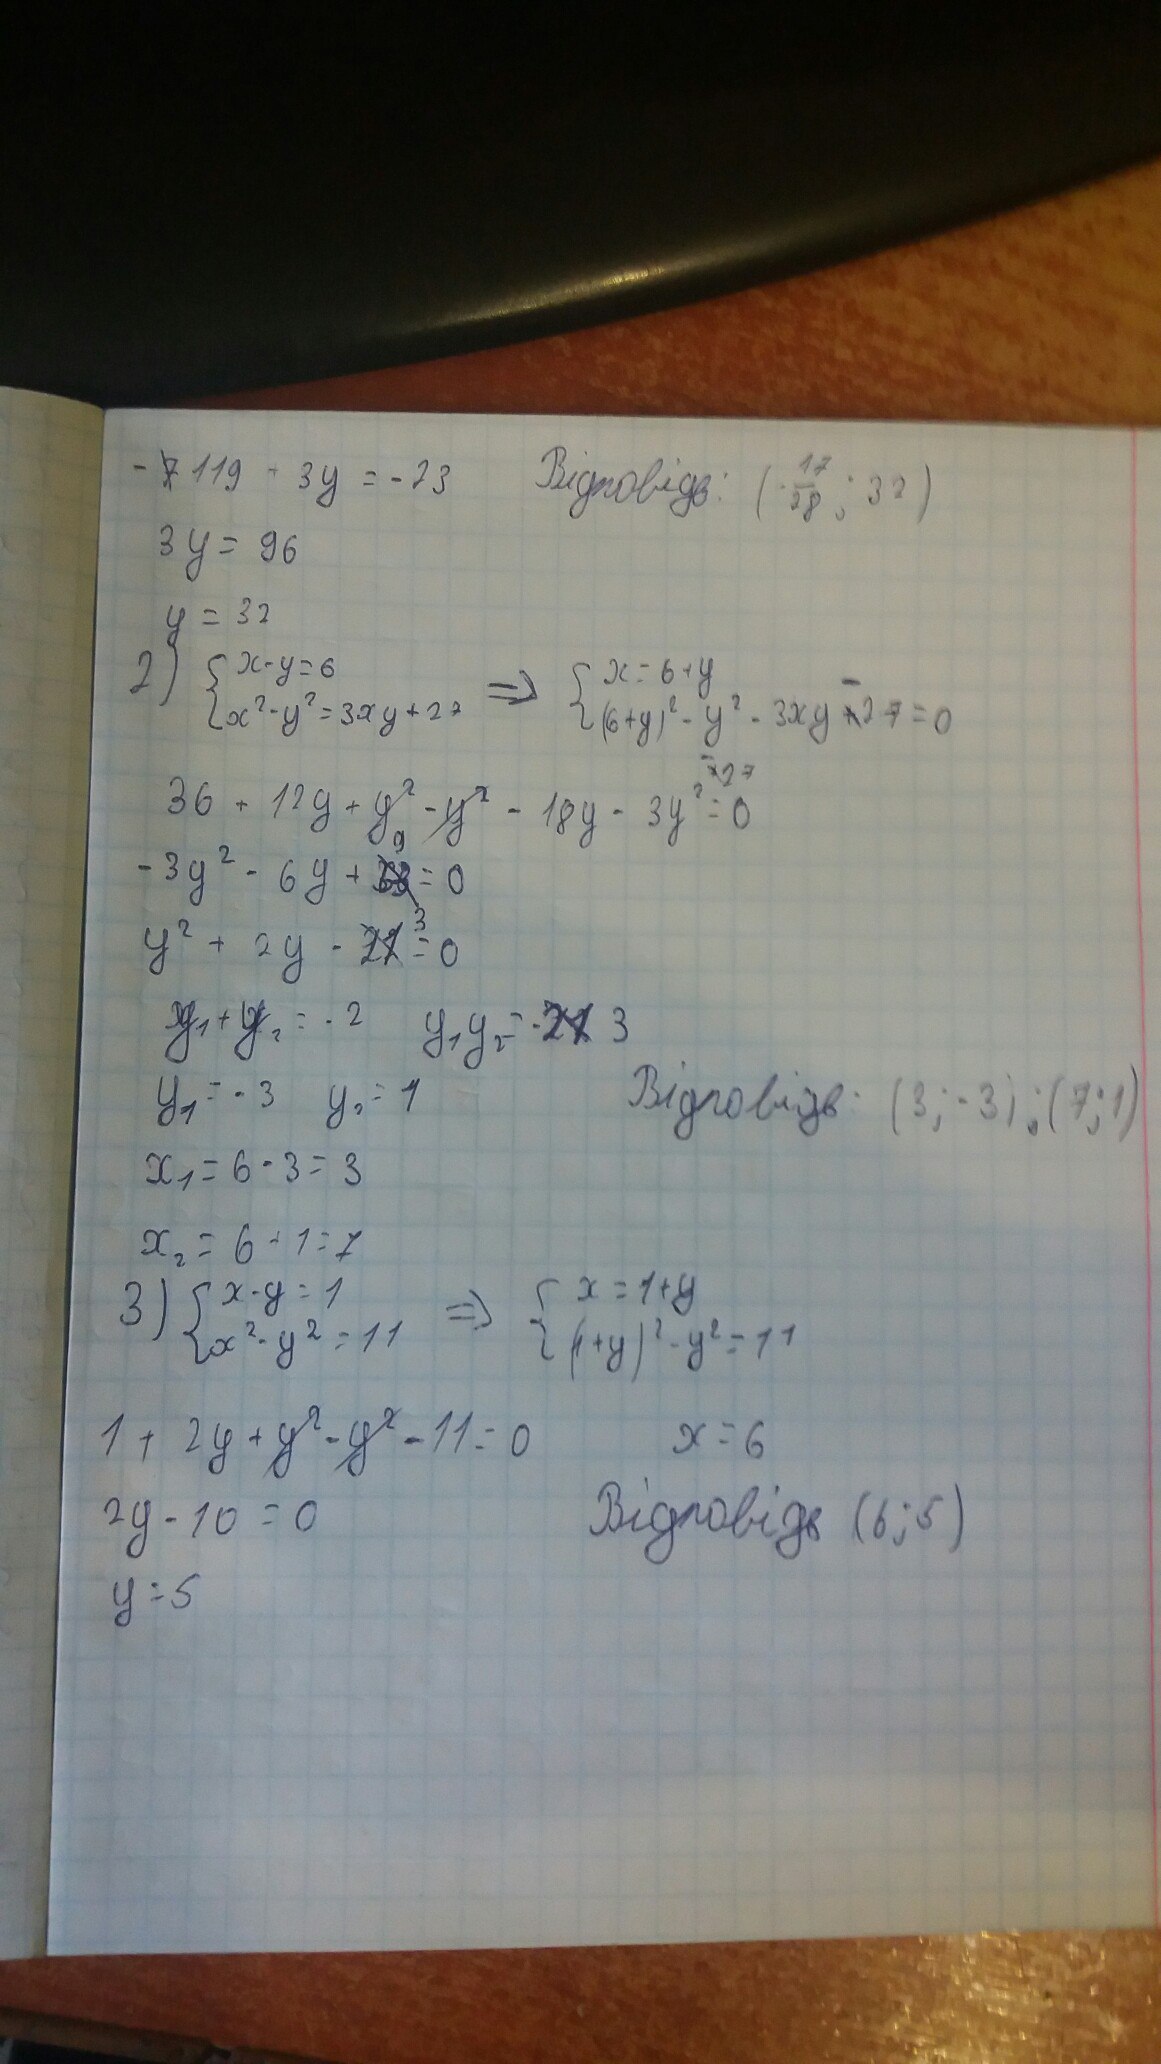 -119 + 3y = -23 Відповідь: (-17/28; 32)
3y = 96
y = 32
2) { x-y=6 => { x=6+y
x²-y²=3xy+27 (6+y)²-y²-3xy-27=0
36 + 12y + y² - y² - 18y - 3y² - 27 = 0
-3y² - 6y + 9 = 0
y² + 2y - 3 = 0
y₁+y₂ = -2 y₁y₂ = -3
y₁ = -3 y₂ = 1 Відповідь: (3;-3);(7;1)
x₁ = 6-3 = 3
x₂ = 6+1 = 7
3) { x-y=1 => { x=1+y
x²-y²=11 (1+y)²-y²=11
1 + 2y + y² - y² - 11 = 0 x = 6
2y - 10 = 0 Відповідь (6;5)
y = 5